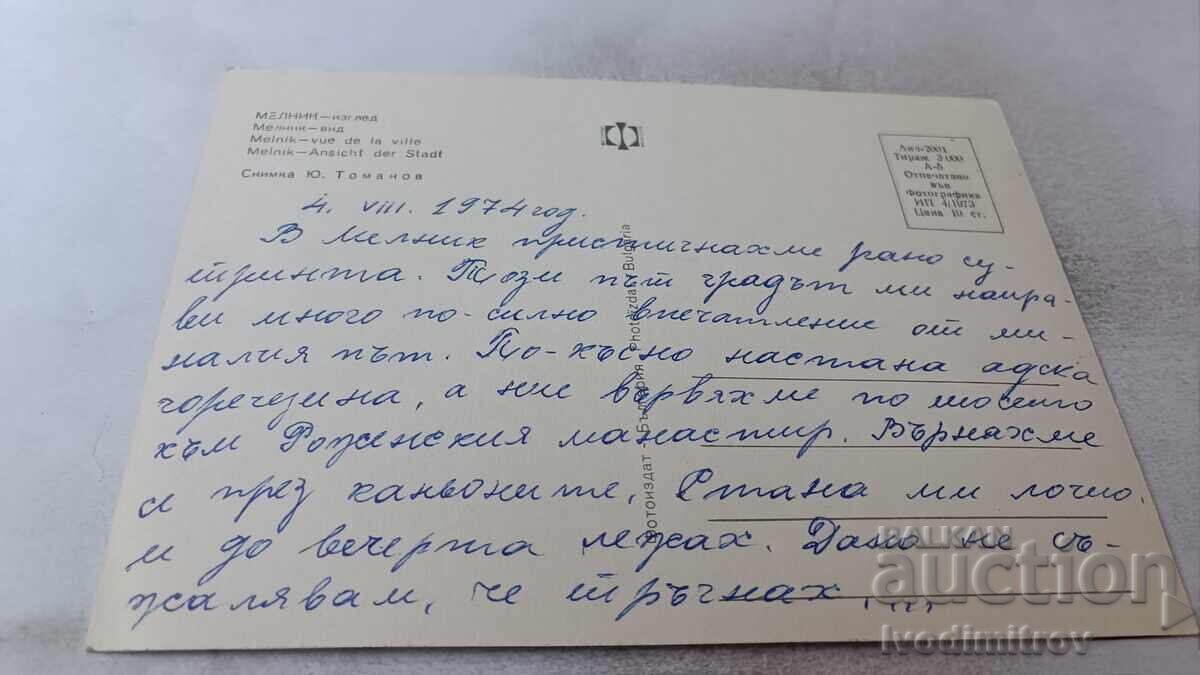 МЕЛНИК—изглед
Мелник—вид
Melnik—vue de la ville
Melnik—Ansicht der Stadt
Снимка Ю. Томанов
Лил-2001
Тираж 3 000
А-6
Отпечатано
във
фотографика
ИП 4/1973
Цена 10 ст.
4. VIII. 1974 год.
В Мелник пристигнахме рано су-
тринта. Този път градът ми напра-
ви много по-силно впечатление от ми-
налия път. По-късно настана адска
горещина, а ние вървяхме по шосето
към Роженския манастир. Върнахме
се през каньоните. Стана ми лошо.
и до вечерта лежах. Дано не съ-
жалявам, че тръгнах....
Фотоиздат - България Photoizdat Bulgaria
BALKAN
auction
Ivodimitrov